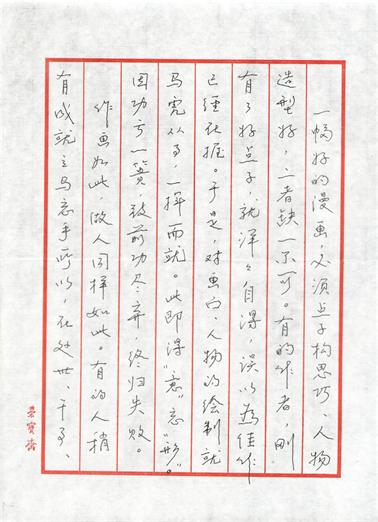 一幅好的漫画必须点子构思巧、人物
造型好，二者缺一不可。有的作者，刚
有了好点子，就洋々自得，误以为佳作
已经在握。于是，对画面、人物的绘制就
马虎从事，一挥而就。此即得“意”忘“形”。
因功亏一篑，致前功尽弃，终归失败。
作画如此，做人同样如此。有的人稍
有成就立马忘乎所以，在处世、干事、
荣宝斋